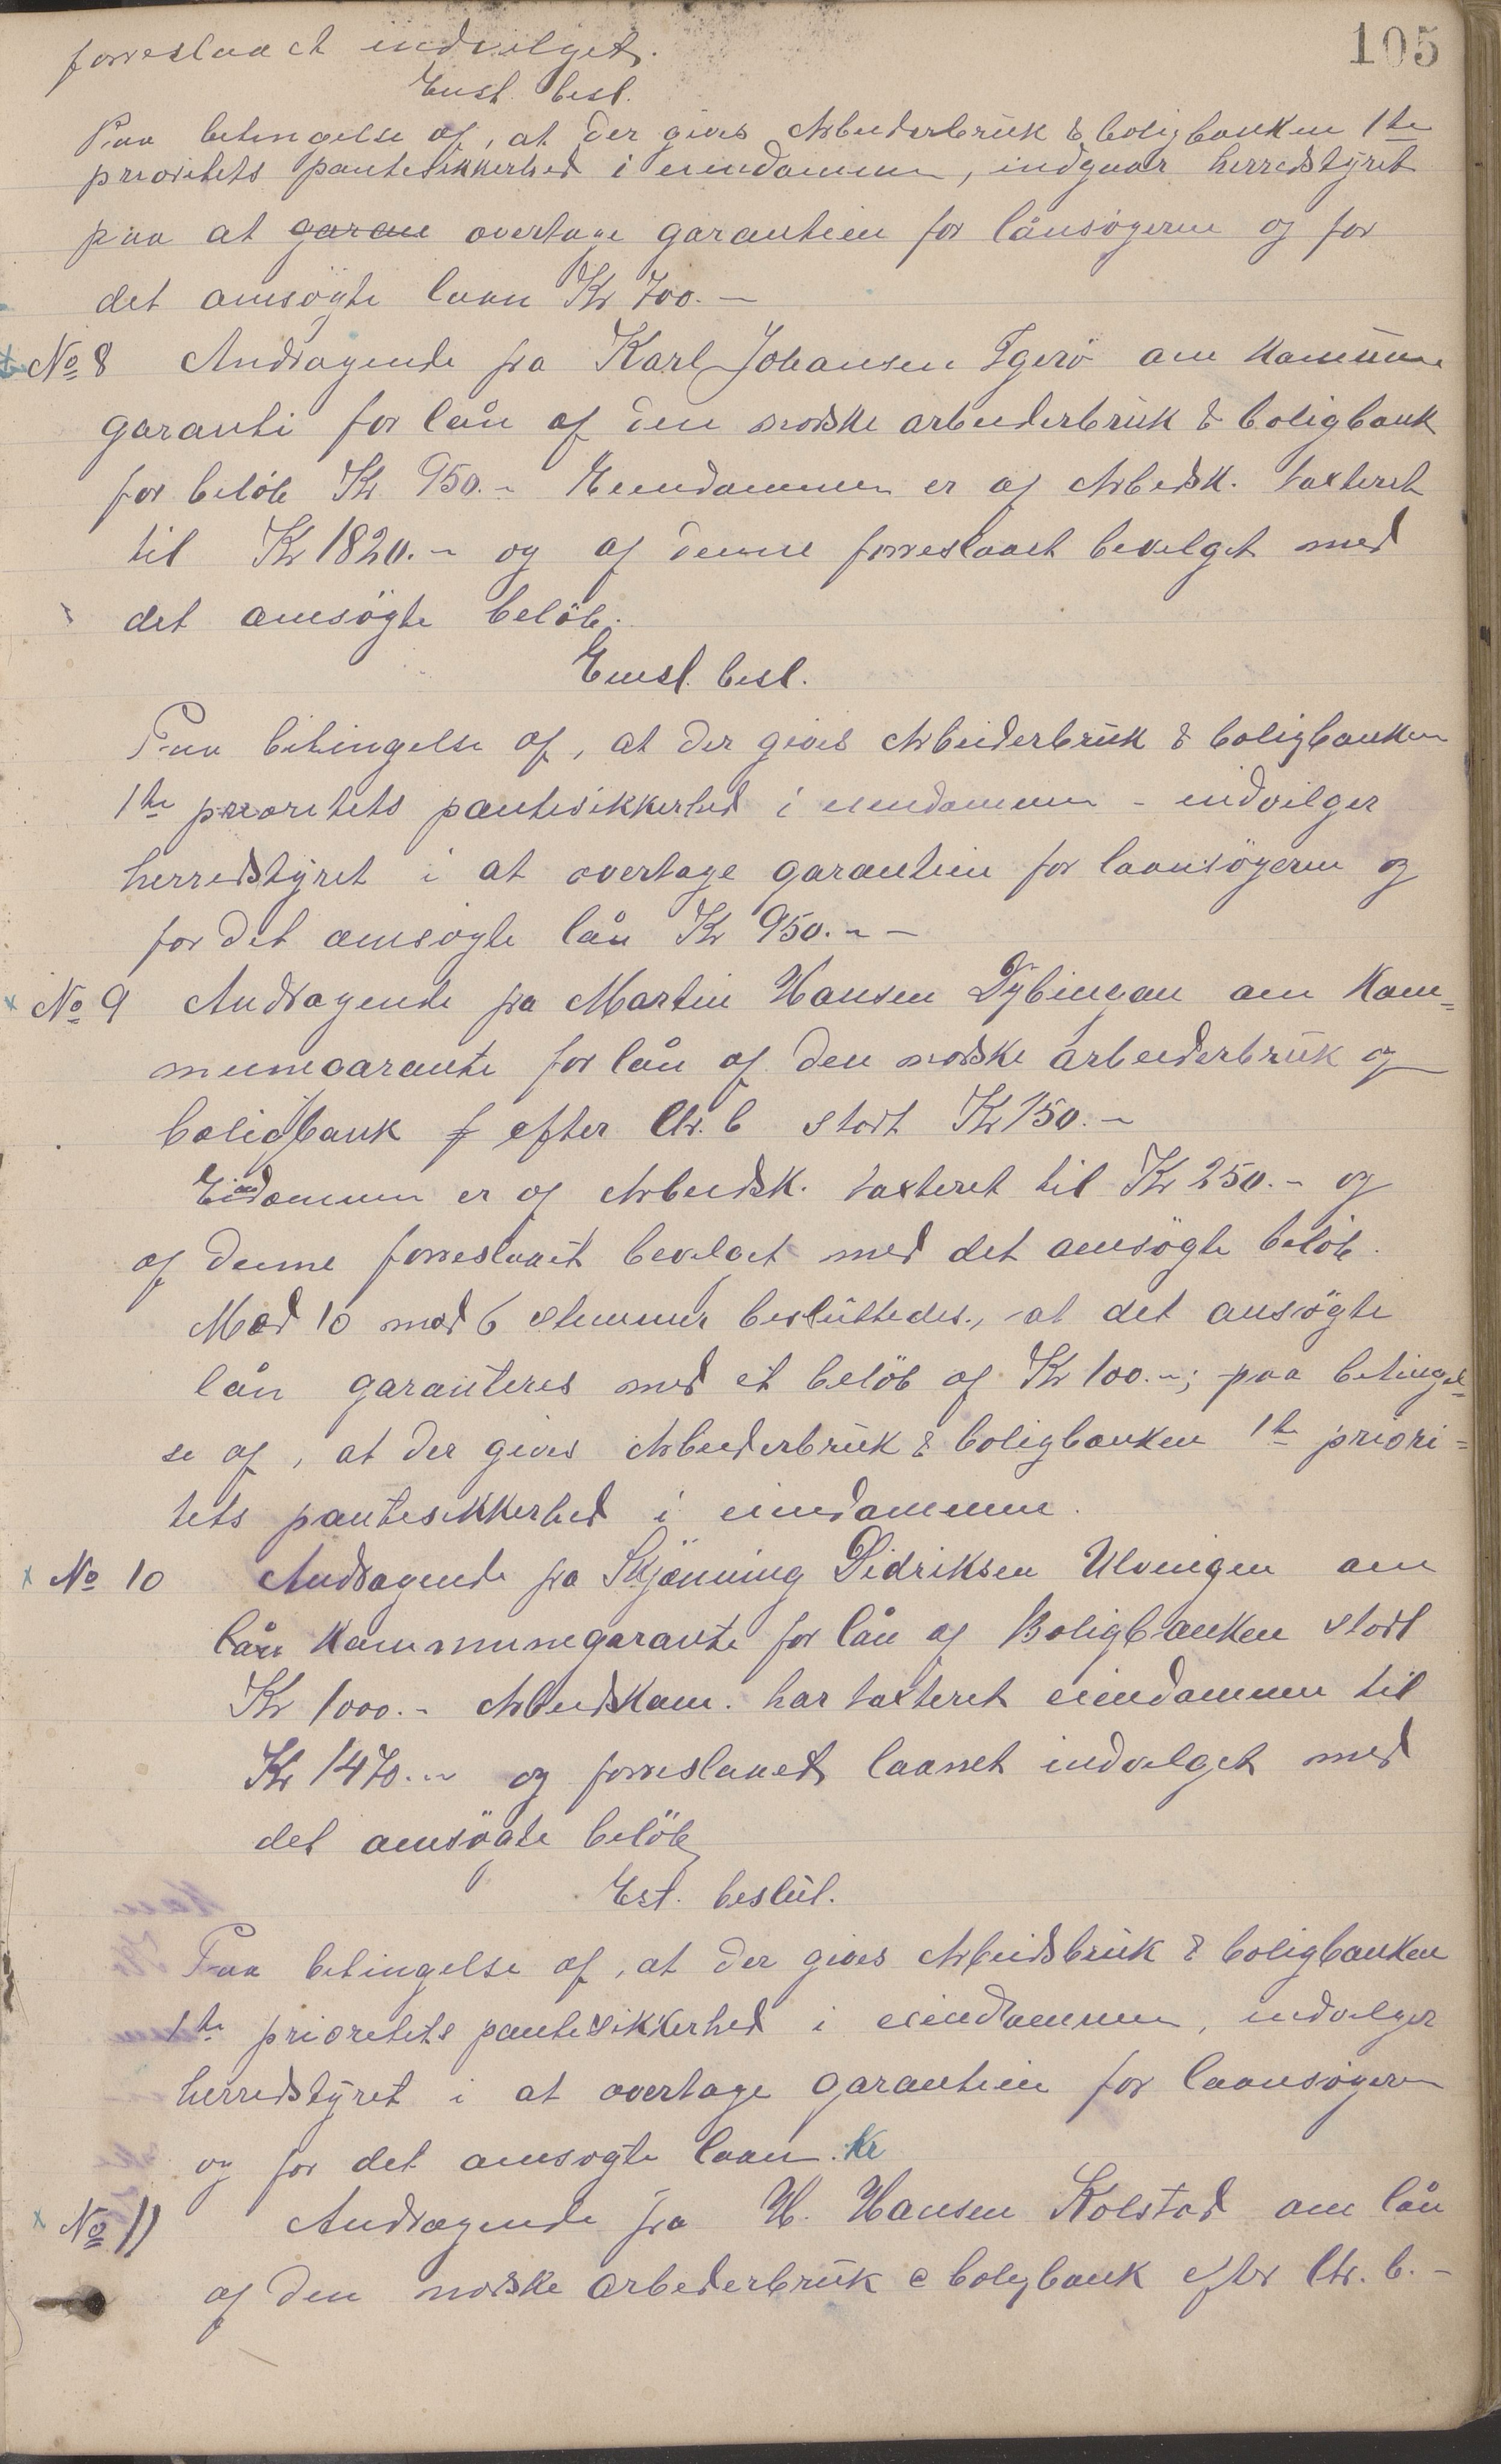 105
forreslaaet indvilget.
Enst. besl.
Paa betingelse af, at der gives Arbeiderbruk & boligbanken 1ste
prioritets pantesikkerhed i eiendommen, indgaar herredstyret
paa at garan overtage garantien for lånsøgeren og for
det omsøgte laan Kr 700.–
No 8 Andragende fra Karl Johansen Igerö om Kommune
garanti for lån af den norske arbeiderbruk & boligbank
for beløb Kr. 950.– Eiendommen er af Arbeidsk. taxteret
til Kr 1820.– og af denne forreslaaet bevilget med
det omsøgte beløb.
Einst. besl.
Paa betingelse af, at der gives Arbeiderbruk & boligbanken
1ste prioritets pantesikkerhed i eiendommen – indvilger
herredstyret i at overtage garantien for laansøgeren og
for det omsøgte lån Kr 950.– –
No 9 Andragende fra Martin Hansen Dybingan om Kom-
munegaranti for lån af den norske arbeiderbruk og
boligbank f efter litr. b stort Kr 150.–
Eiendommen er af Arbeidsk. taxteret til Kr 250.– og
af denne forreslaaet bevilget med det omsøgte beløb.
Med 10 mod 6 stemmer besluttedes, at det ansøgte
lån garanteres med et beløb af Kr 100.–; paa betingel-
se af, at der gives Arbeiderbruk & boligbanken 1ste priori-
tets pantesikkerhed i eiendommen.
No 10 Andragende fra Skjønning Didriksen Ulvingen om
lån Kommunegaranti for lån af Boligbanken stort
Kr 1000.– Arbeidskom. har taxteret eiendommen til
Kr 1470.– og forreslaaet laanet indvilget med
det omsøgte beløb
Est. beslut.
Paa betingelse af, at der gives Arbeidsbruk & boligbanken
1ste prioritets pantesikkerhed i eiendommen, indvilger
herredstyret i at overtage garantien for laansøgeren
og for det omsøgte laan. Kr
No 11 Andragende fra H. Hansen Kolstad om lån
af den norske arbeiderbruk & boligbank efter litr. b.–